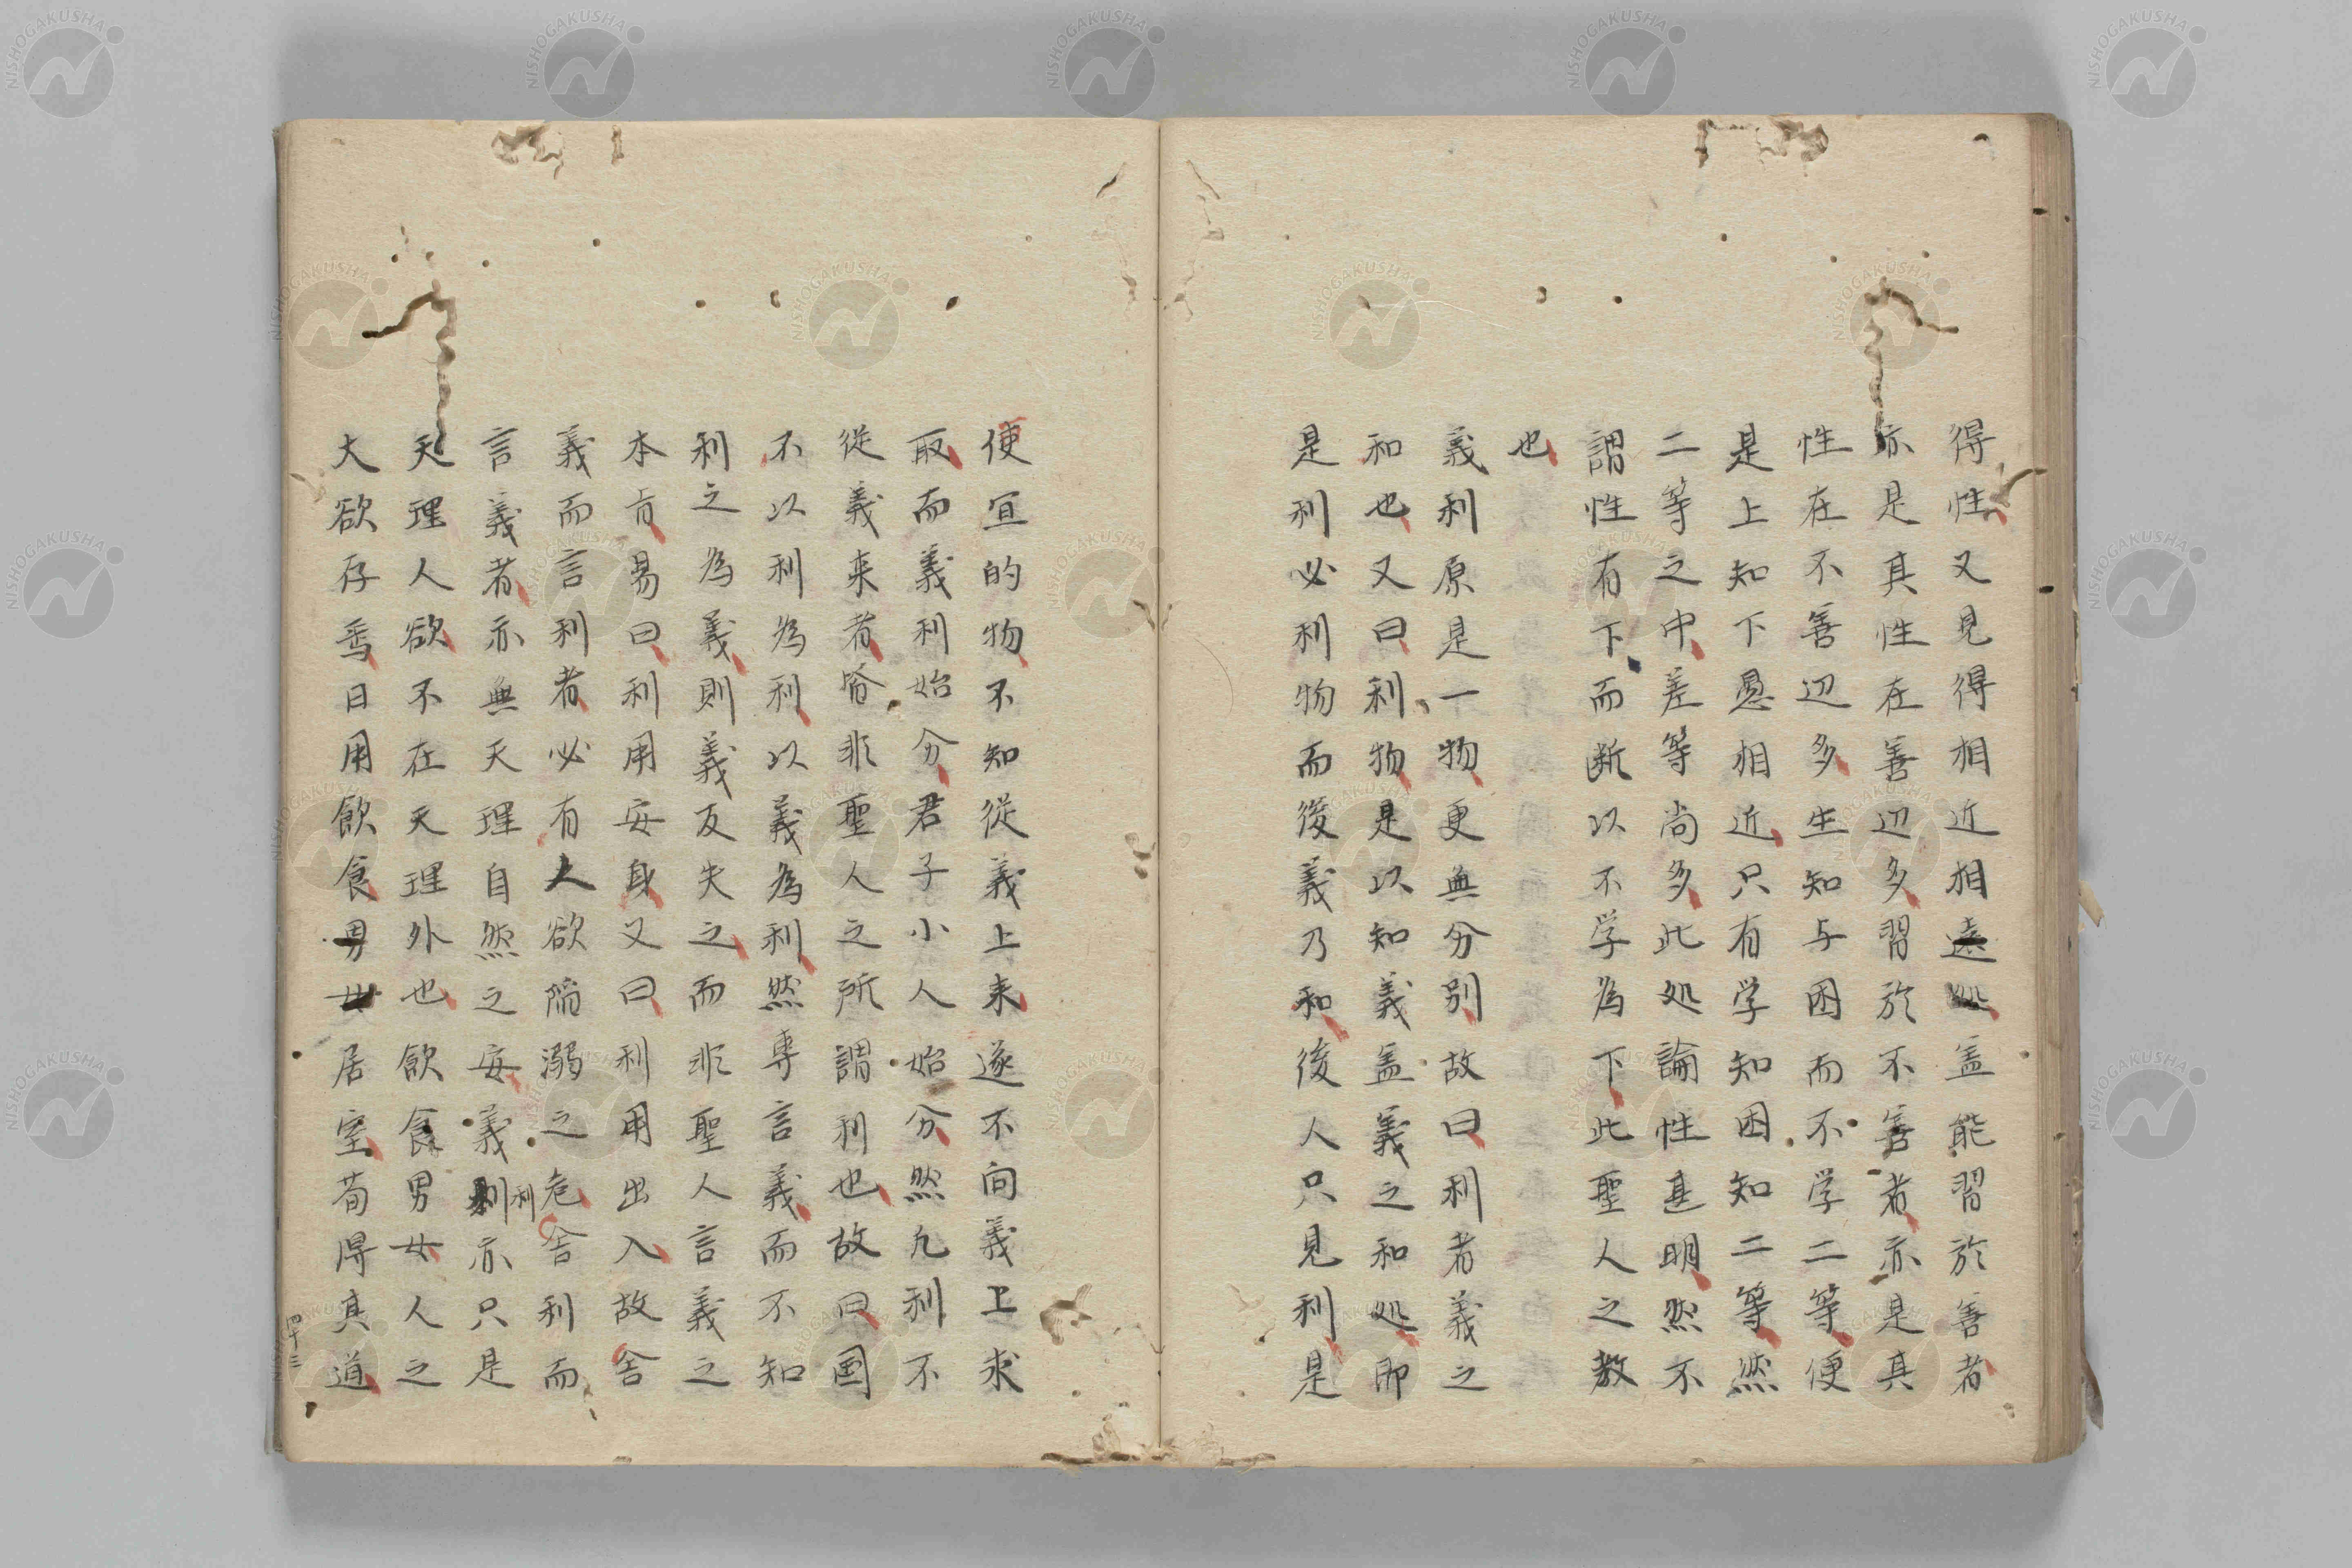 得性又見得相近相遠処盖能習於善者
亦是其性在善辺多習於不善者亦是其
性在不善辺多生知与困而不学二等便
是上知下愚相近只有学知困知二等然
二等之中差等尚多此処論性甚明然不
謂性有下而断以不学為下此聖人之教
也
義利原是一物更無分別故曰利者義之
和也又曰利物是以知義盖義之和処即
是利必利物而後義乃和後人只見利是
便宜的物不知従義上来遂不向義上求
取而義利始分君子小人始分然凡利不
従義来者皆非聖人之所謂利也故曰国
不以利為利以義為利然専言義而不知
利之為義則義反失之而非聖人言義之
本旨易曰利用安身又曰利用出入故舎
義而言利者必有人欲陥溺之危舎利而
言義者亦無天理自然之安義利亦只是
天理人欲不在天理外也飲食男女人之
大欲存焉日用飲食男女居室苟得其道
四十三
NISHOGAKUSHA